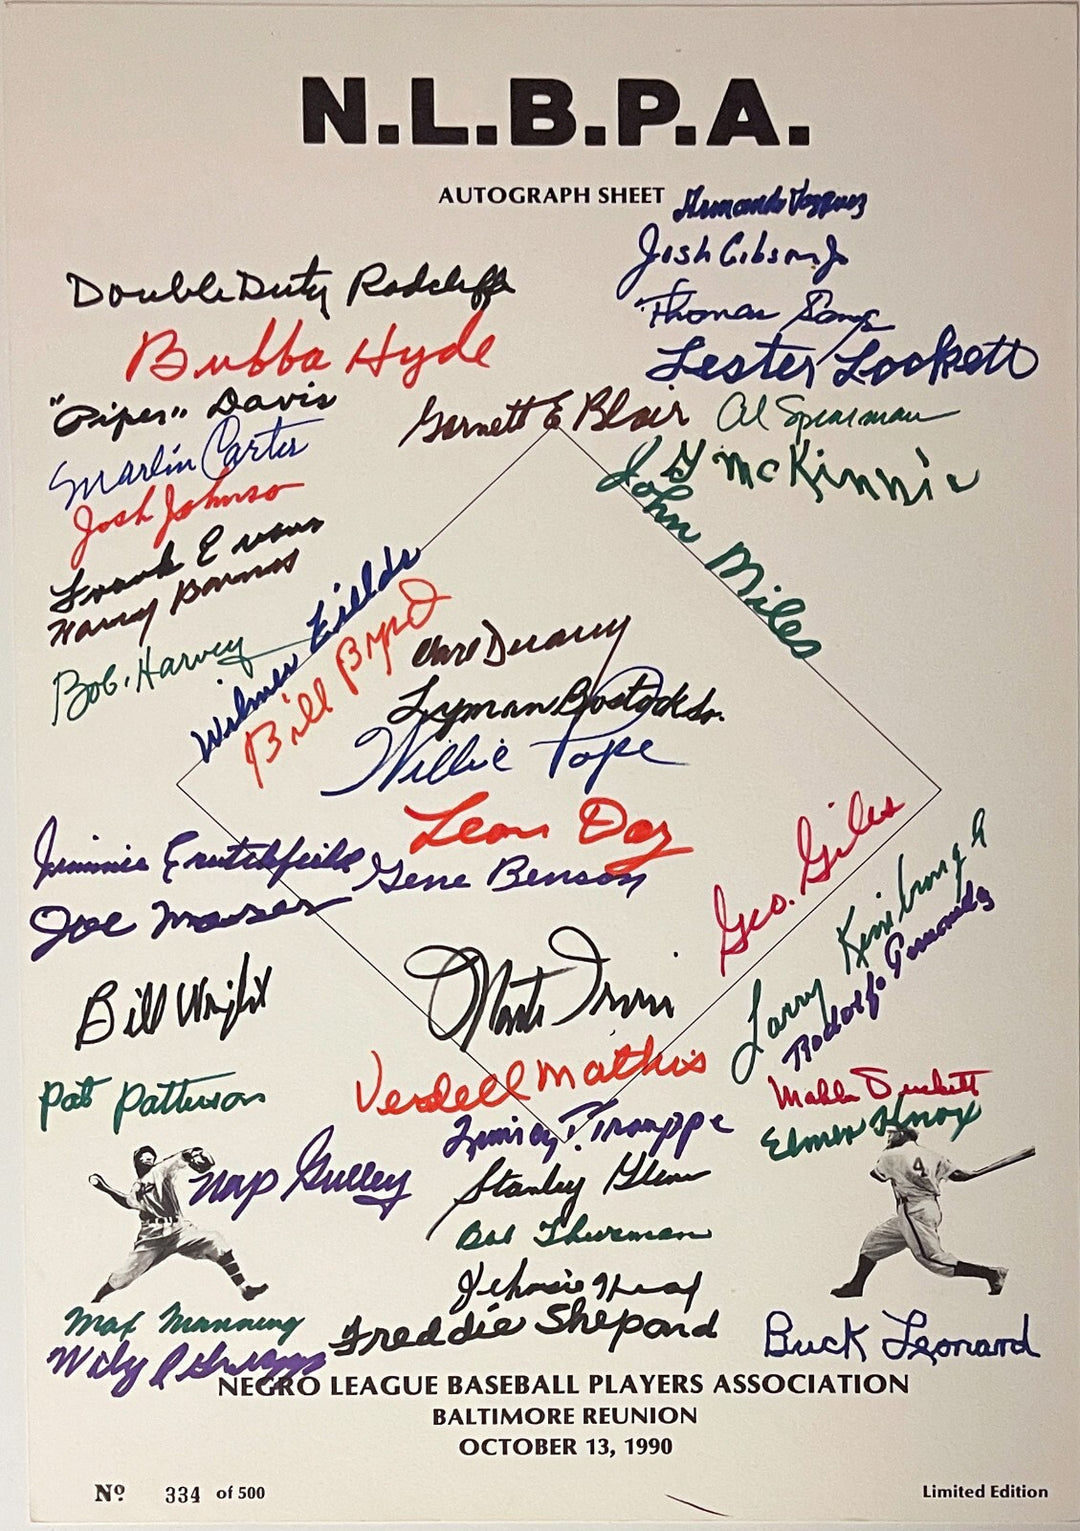 N.L.B.P.A.
AUTOGRAPH SHEET
Armando Vazquez
Josh Gibson Jr
Thomas
Lester Lockett
Double Duty Radcliffe
Bubba Hyde
"Piper" Davis
Garnett E Blair
Al Spearman
Marlin Carter
G McKinnis
Josh Johnson
John Miles
Frank Evans
Harry Barnes
Bob. Harvey
Wilmer Fields
Bill Byrd
Lyman Bostock Sr.
Willie Pope
Leon Day
Geo. Giles
Jimmie Crutchfield
Gene Benson
Larry Kimbrough
Rodolfo Fernandez
Joe
Bill Wright
Monte Irvin
Pat Patterson
Verdell Mathis
Mahlon Duckett
Elmer Knox
Trouppe
4
Nap Gulley
Stanley Glenn
Bob Thurman
Max Manning
Freddie Shepard
Buck Leonard
Wily
NEGRO LEAGUE BASEBALL PLAYERS ASSOCIATION
BALTIMORE REUNION
OCTOBER 13, 1990
Nº 334 of 500
Limited Edition